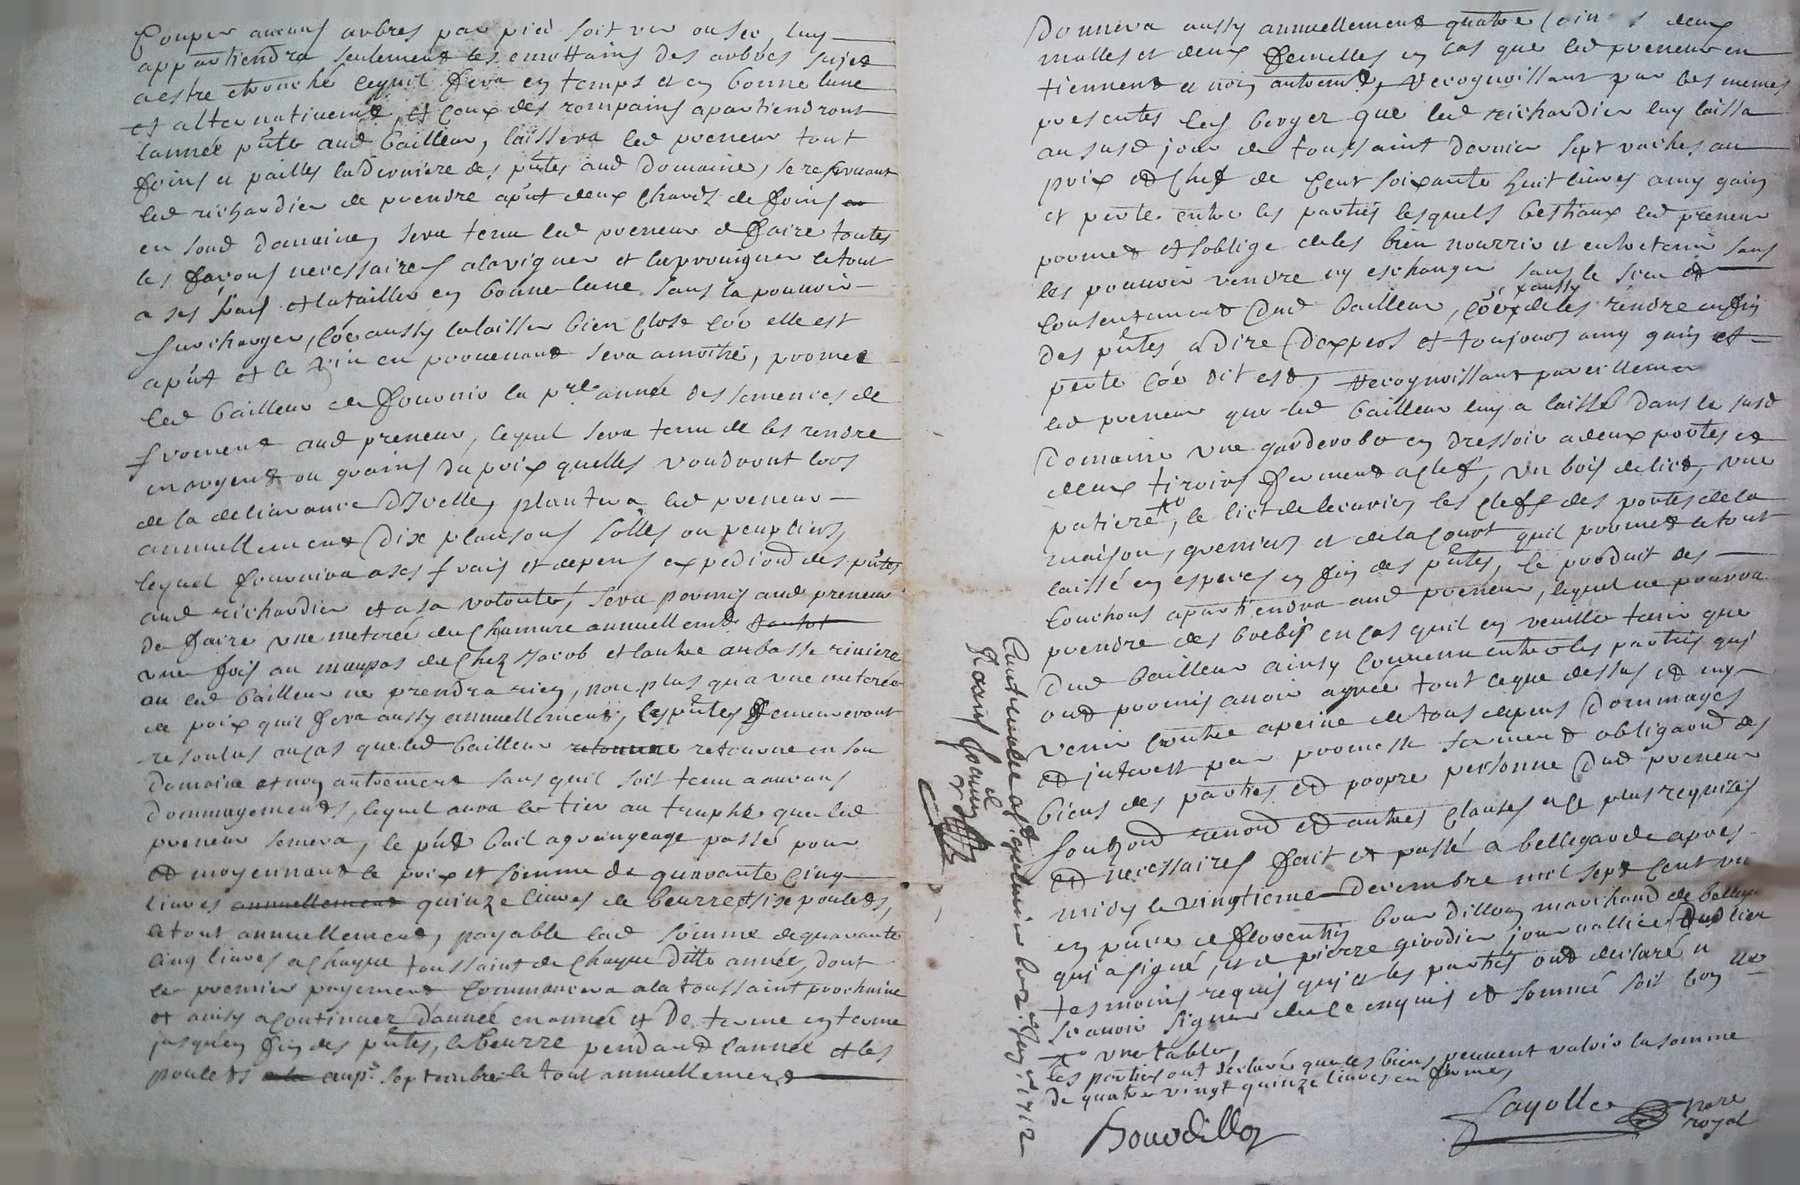 Couper aucuns arbres par pied soit ver ou sec, luy
appartiendra seulement les emottains des arbres sujet
a estre ébranché lequil fera en temps et en bonne lune
et alternativemt, et ceux des rompains apartiendront
lannée pnte aud bailleur, laissera led preneur tout
foins et pailles la derniere des pntes aud domaine, se reservant
led richardier de prendre apnt deux chards de foins
en sond domaine, sera tenu led preneur de faire toutes
les facons necessaires a la vigner et la provigner le tout
a ses frais et la tailler en bonne lune sans la pouvoir
surcharger, coe aussy la laisser bien close coe elle est
apnt et le vin en provenant sera a moitié, promet
led bailleur de fournir la pre année des semences de
froment aud preneur, lequel sera tenu de les rendre
en argent ou grains du prix quelles vaudront lors
de la delivrance d'Icelle, plantera led preneur
annuellement dix plansons solles ou peupliers,
lequel fournira a ses frais et depens expediond des pntes
aud richardier et a sa volonté, sera permis aud preneur
de faire une meterée de chamure annuellemt tantot
une fois au maupas de chez Jacob et lautre au basse riviere
ou led bailleur ne prendra rien, non plus qua une meterée
de poix quil fera aussy annuellement, les pntes demeureront
resolus au cas que led bailleur retourne retourne en son
domaine et non autrement sans quil soit tenu a aucuns
dommagements, lequel aura le tier au truphe que led
preneur semera, le pnt bail a grangeage passé pour
et moyennant le prix et somme de quarante cinq
livres annuellement quinze livres de beurre et six poulets,
le tout annuellement, payable lad somme de quarante
cinq livres a chaque toussaint de chaque ditte année, dont
le premier payement commancera a la toussaint prochaine
et ainsy a continuer d'année en année et de terme en terme
jusquen fin des pntes, le beurre pendant l'année et les
poulets a la aup. septembre le tout annuellement
Donnera aussy annuellement quatre deux
malles et deux femelles en cas que led preneur en
tiennent et non autremt, Recognoissant par les memes
presentes led berger que led richardier luy laissa
au susd jour de toussaint dernier sept vaches au
prix et chef de cent soixante huit livres a my gain
et perte entre les parties lesquels bestiaux led preneur
promet et s'oblige de les bien nourrir et entretenir sans
les pouvoir vendre ny eschanger sans le sceu et
consentement dud bailleur, coe aussy de les rendre en fin
des pntes a dire d'expers et toujours a my gain et
perte coe dit est, Recognoissant pareillement
led preneur que led bailleur luy a laissé dans le susd
Domaine une garderobe en dressoir a deux portes et
deux tiroirs fermant a clef, un bois de lict, une
patiere, le lict de lecurie, les cleff des portes de la
maison, greniers et de la court quil promet le tout
laissé en especes en fin des pntes, le produit des
couchons apartiendra aud preneur, lequel ne pourra
prendre des brebis en cas quil en veuille tenir que
dud bailleur ainsy convenu entre les parties qui
ont promis avoir agreé tout ce que dessus et ny
venir contre a peine de tous depens dommages
et interest par promesse serment obligaond des
biens des parties et propre personne dud preneur
soubond renond et autres clauses a ce plus requises
et necessaires fait et passé a bellegarde apres
midy le vingtieme decembre mil sept cent un
en pnce de florentin bourdillon marchand de belleg
qui a signé, et de pierre girodier journallier dud lieu
tesmoins requis qui et les parties ont declaré n
scavoir signer de ce enquis et sommé soit bon
une table,
les parties ont declaré que les biens peuvent valoir la somme
de quatre vingt quinze livres en fermes
Bourdillon
Fayolle nore
royal
1712